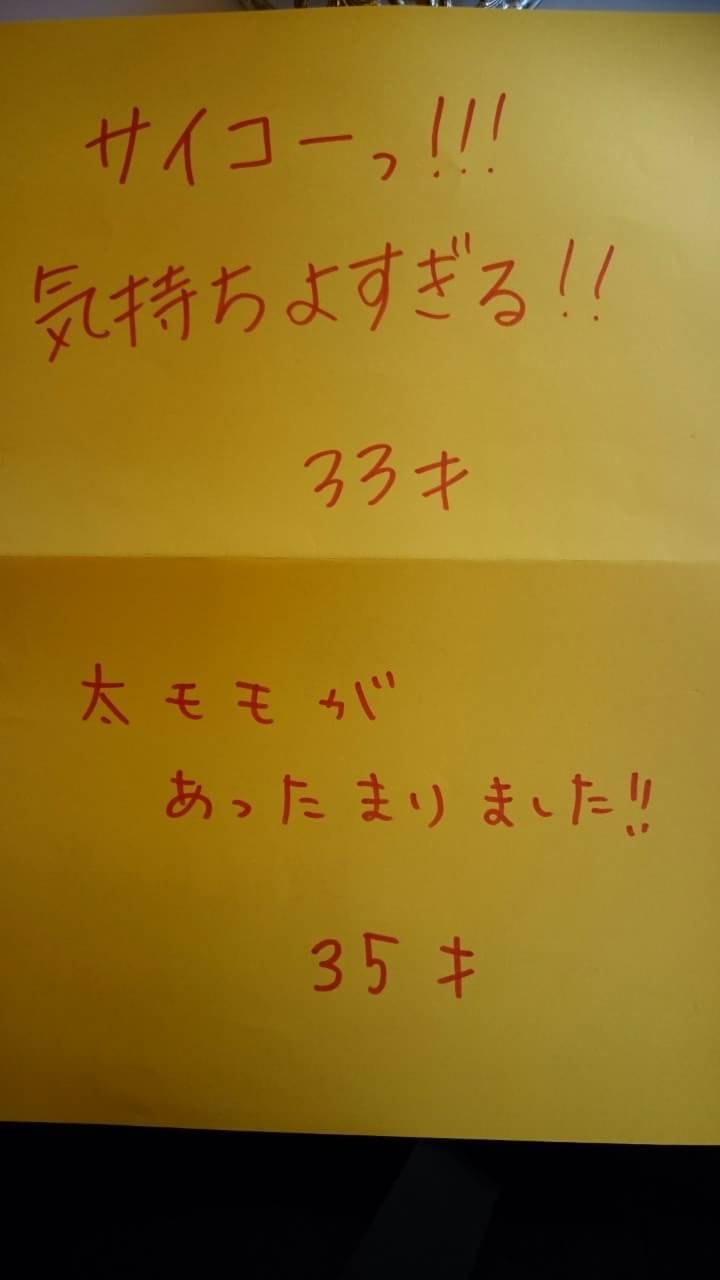 サイコーっ!!!
気持ちよすぎる!!
33才
太モモが
あったまりました!!
35才